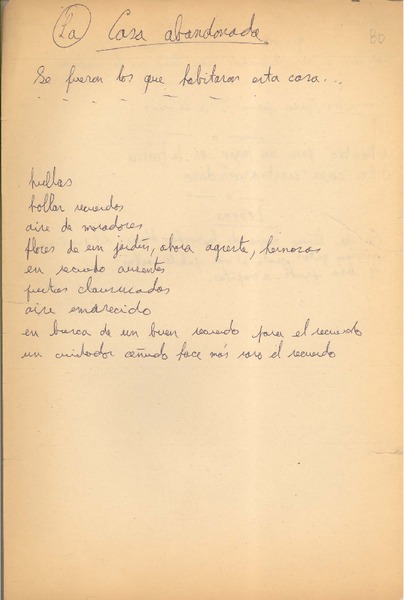 La Casa abandonada
80
Se fueron los que habitaron esta casa...
huellas
hollar recuerdos
aire de moradores
flores de un jardín, ahora agreste, hermosas
en recuerdo ausentes
puertas clausuradas
aire
en busca de un buen recuerdo para el recuerdo
un cuidador ceñudo hace más raro el recuerdo